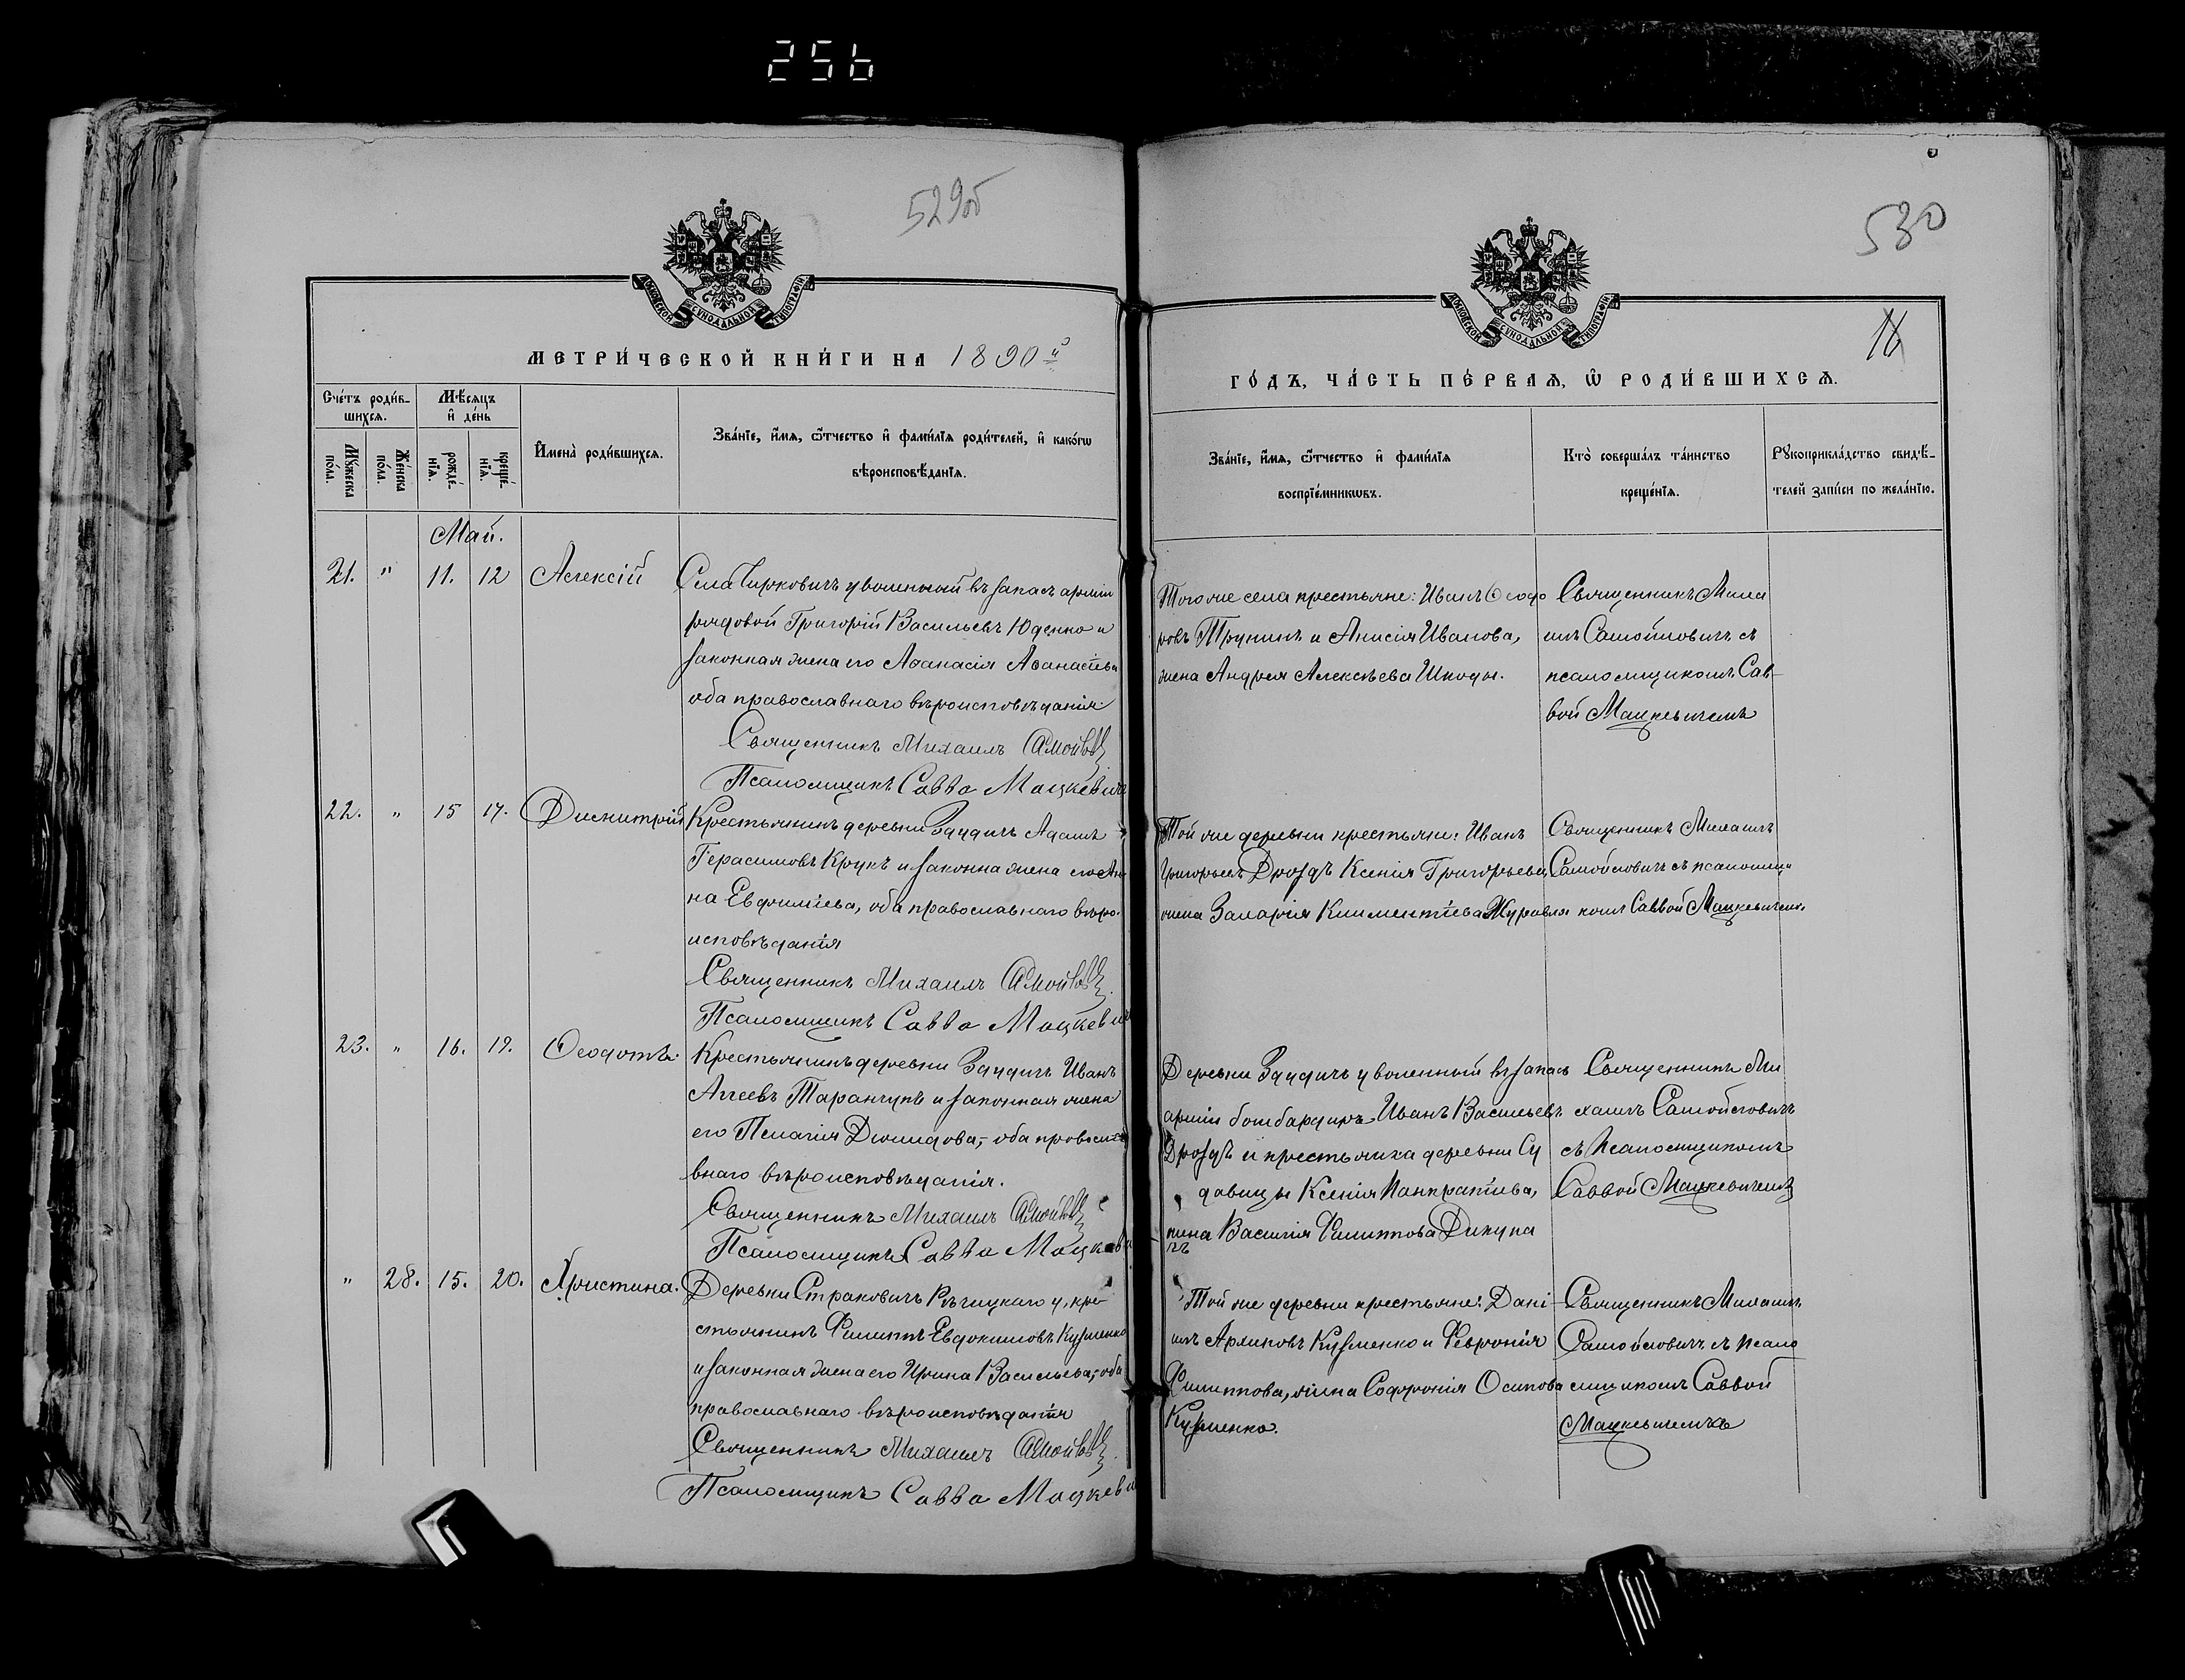 256
529об
МОСКОВСКОЙ СѴНОДАЛЬНОЙ ТИПОГРАФІИ
МЕТРИ́ЧЕСКОЙ КНИ́ГИ НА 1890й
Сче́тъ роди́в-
шихсѧ.
Мꙋ́жеска по́ла.
Же́нска по́ла.
Мѣ́сѧцъ
и҆ де́нь
рожде́-
нїѧ.
креще́-
нїѧ.
И҆мена̀ роди́вшихсѧ.
Зва́нїе, и҆́мѧ, ѿ́тчество и҆ фами́лїѧ роди́телей, и҆ како́гѡ
вѣроисповѣ́данїѧ.
Май.
21. " 11. 12 Алексій
Села Чирковичъ уволенный въ запасъ арміи
рядовой Григорій Васильевъ Юденко и
законная жена его Аѳанасія Аѳанасіева
оба православнаго вѣроисповѣданія
Священникъ Михаилъ Самойлов
Псаломщикъ Савва Мацкевичъ
22. " 15 17. Димитрій
Крестьянинъ деревни Здудичъ Адамъ
Герасимовъ Крукъ и законна жена его Ан-
на Евфиміева, оба православнаго вѣро-
исповѣданія
Священникъ Михаилъ Самойлов
Псаломщикъ Савва Мацкевич
23. " 16. 19. Ѳеодотъ.
Крестьянинъ деревни Здудичъ Иванъ
Агеевъ Таранчукъ и законная жена
его Пелагія Діомидова, оба правосла-
внаго вѣроисповѣданія.
Священникъ Михаилъ Самойлов
Псаломщикъ Савва Мацкеви
" 28. 15. 20. Христина.
Деревни Страковичъ Рѣчицкаго у. кре-
стьянинъ Филиппъ Евдокимовъ Кузменко
и законная жена его Ирина Васильева, оба
православнаго вѣроисповѣданія
Священникъ Михаилъ Самойлов
Псаломщикъ Савва Мацкеви
530
16
МОСКОВСКОЙ СѴНОДАЛЬНОЙ ТИПОГРАФІИ
ГО́ДЪ, ЧА́СТЬ ПЕ́РВАѦ, Ѽ РОДИ́ВШИХСѦ.
Зва́нїе, и҆́мѧ, ѿ́тчество и҆ фами́лїѧ
воспрїе́мникѡвъ.
Кто̀ соверша́лъ та́инство
креще́нїѧ.
Рꙋкоприкла́дство свидѣ́-
телей за́писи по жела́нїю.
Того же села крестьяне: Иванъ Ѳеодо
ровъ Трункинъ и Анисія Иванова,
жена Андрея Алексѣева Шкоды.
Священникъ Миха
илъ Самойловичъ съ
псаломщикомъ Сав-
вой Мацкевичемъ
Той же деревни крестьяне: Иванъ
Григорьевъ Дроздъ Ксенія Григорьева
жена Захарія Климентіева Журавля
Священникъ Михаилъ
Самойловичъ съ псаломщи
комъ Саввой Мацкевичемъ.
Деревни Здудичъ уволенный въ запасъ
арміи бомбардиръ Иванъ Васильевъ
Дроздъ и крестьянка деревни Су
довицы Ксенія Панкратіева,
жена Василія Филиппова Дикуна
Священникъ Ми
хаилъ Самойловичъ
съ Псаломщикомъ
Саввой Мацкевичемъ
Той же деревни крестьяне: Дані-
илъ Кузменко и Февронія
Филиппова, жена Софронія Осипова
Кузменко.
Священникъ Михаилъ
Самойловичъ съ псало
мщикомъ Саввой
Мацкевичемъ